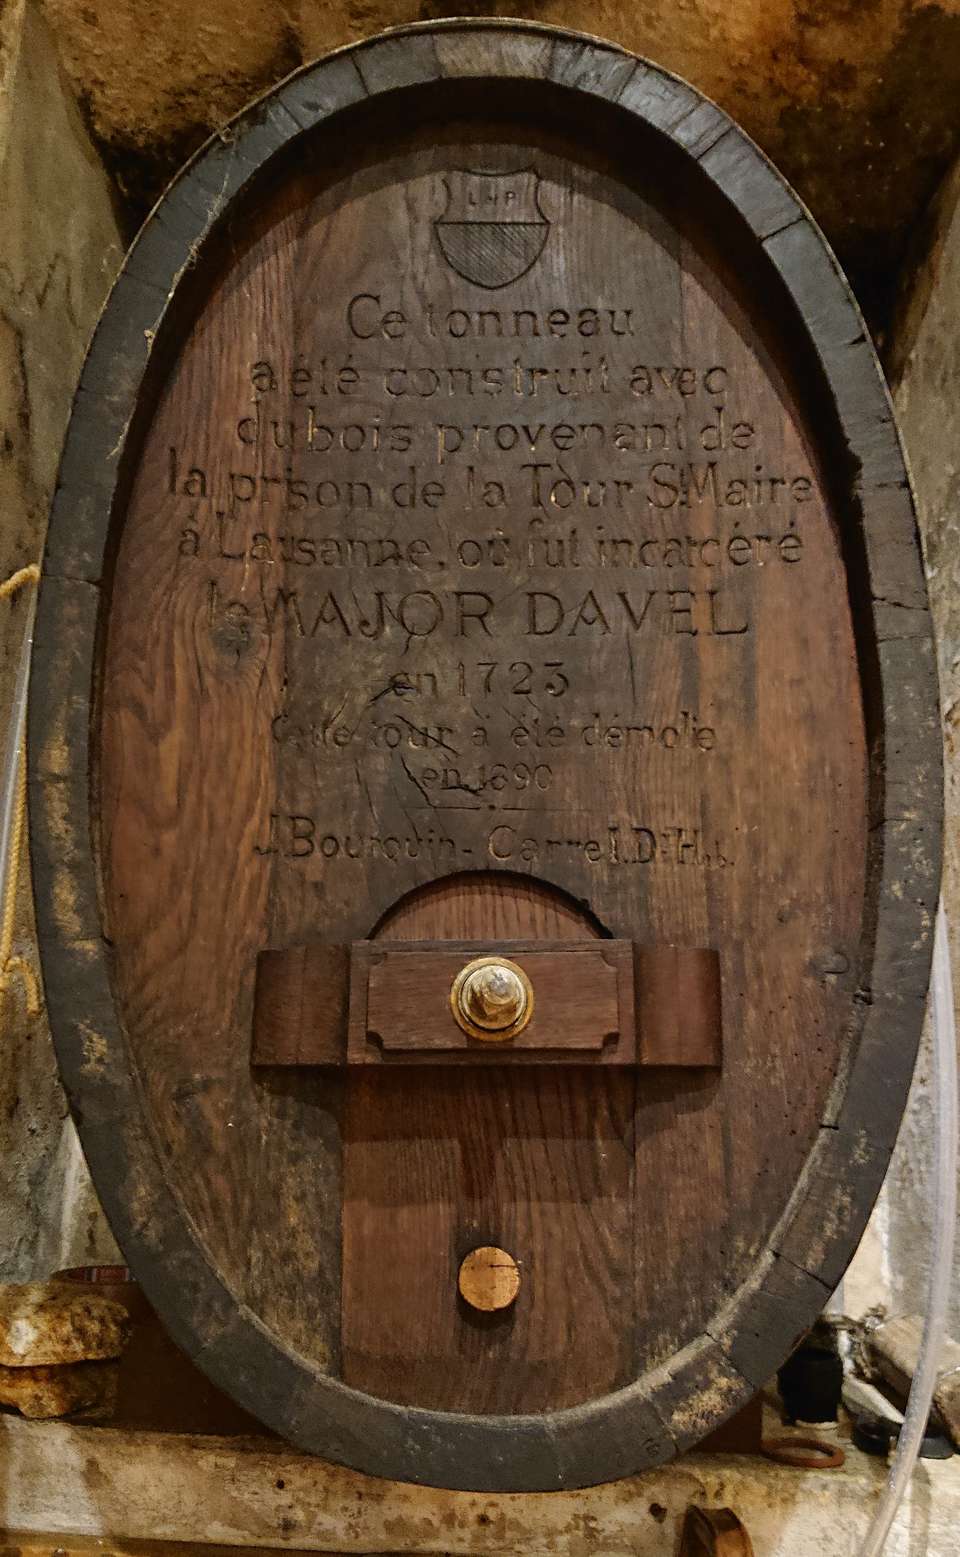 Ce tonneau
a été construit avec
du bois provenant de
la prison de la Tour St Maire
à Lausanne, où fut incarcéré
le MAJOR DAVEL
en 1723
Cette tour a été démolie
en 1890
J. Bourquin-Carrel. Dr H